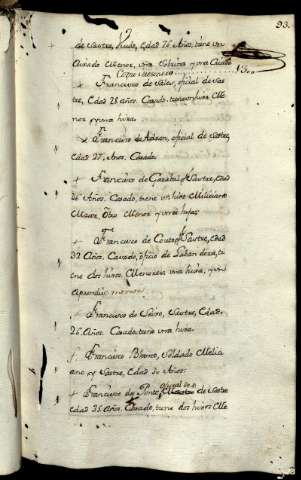 93.
de Sastre, Viudo, Edad 76 Años, tiene un
Criado Menor, una Sobrina y una Criada
+ Francisco de Salas, oficial de Sas
tre, Edad 28 años. Casado, tiene un hijo Me
nor y una hija
Francisco de Adran, oficial de Sastre,
Edad 27, Años. Casado
+ Francisco de Sastre, Edad
36 Años. Casado, tiene un hijo Miliciano
Maior, Otro Menor y otras hijas
+ Francisco de Couto, Sastre, Edad
32 Años. Casado, oficio de Labranza, tie
ne dos hijos Menores una hija, y un
Aprendiz menor
+ Francisco de Sastre, Edad
26 Años. Casado, tiene una hija
+ Francisco Blanco, Soldado Melici
ano, y Sastre, Edad 30 Años
+ Francisco de Ponte, oficial de Sastre
Edad 35 Años, Casado, tiene dos hijos Me